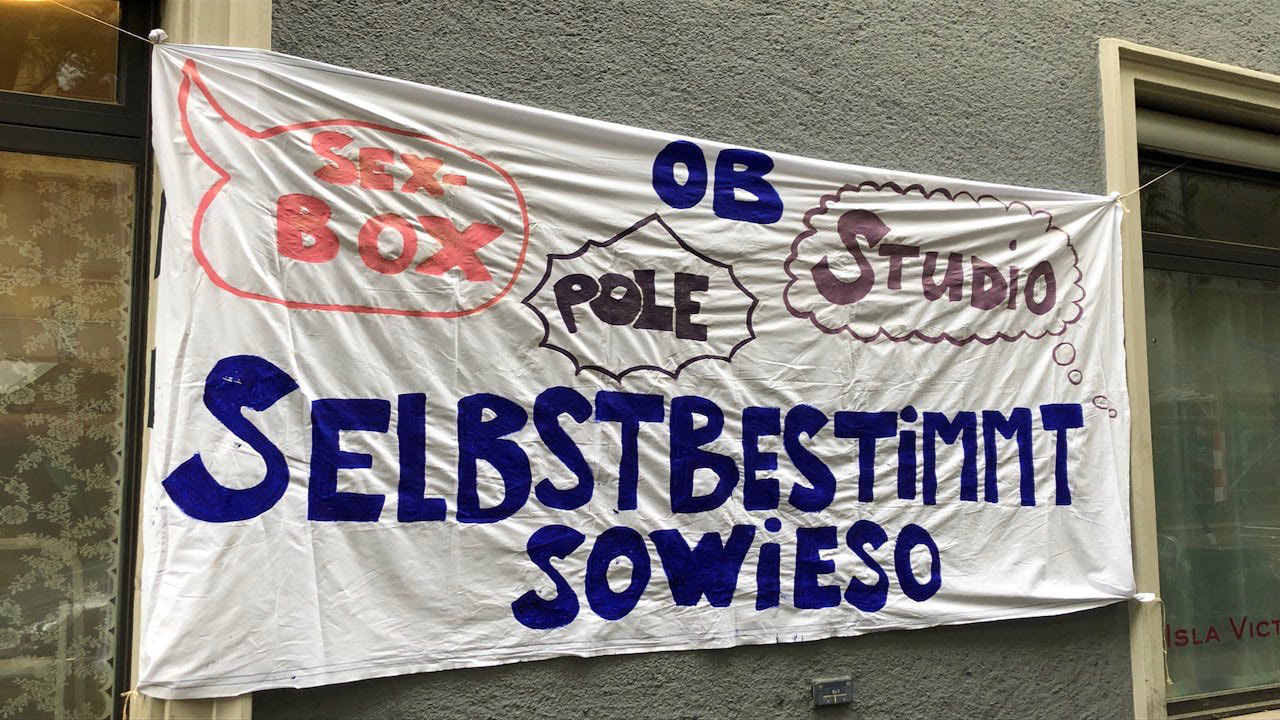 OB
SEX-
BOX
POLE
STUDiO
SELBSTBESTiMMT
SOWiESO
ISLA VICT